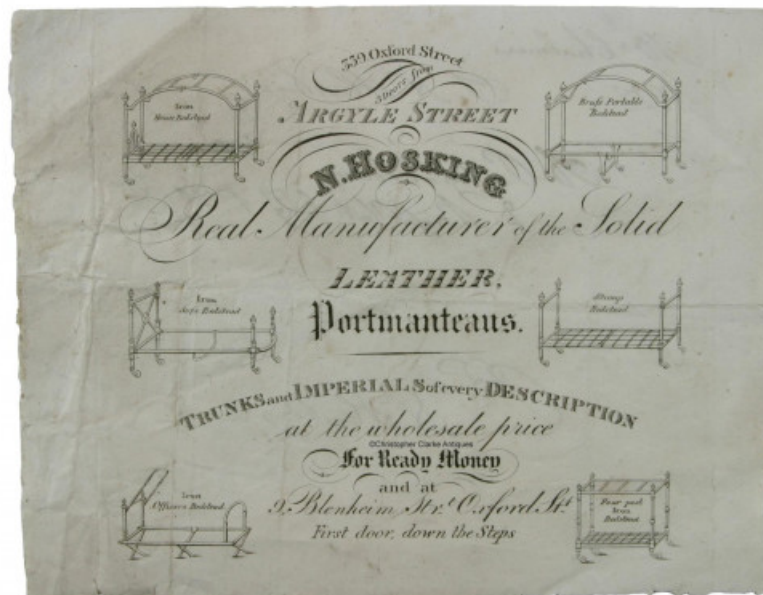 339, Oxford Street
3 Doors from
ARGYLE STREET
N. HOSKING
Real Manufacturer of the Solid
LEATHER,
Portmanteaus.
TRUNKS and IMPERIALS of every DESCRIPTION
at the wholesale price
©Christopher Clarke Antiques
For Ready Money
and at
9, Blenheim Str.t Oxford St.
First door, down the Steps
Iron
Bedstead
Brass Portable
Bedstead
Iron
Sofa Bedstead
Stump
Bedstead
Iron
Officers Bedstead
Four post
Iron
Bedstead